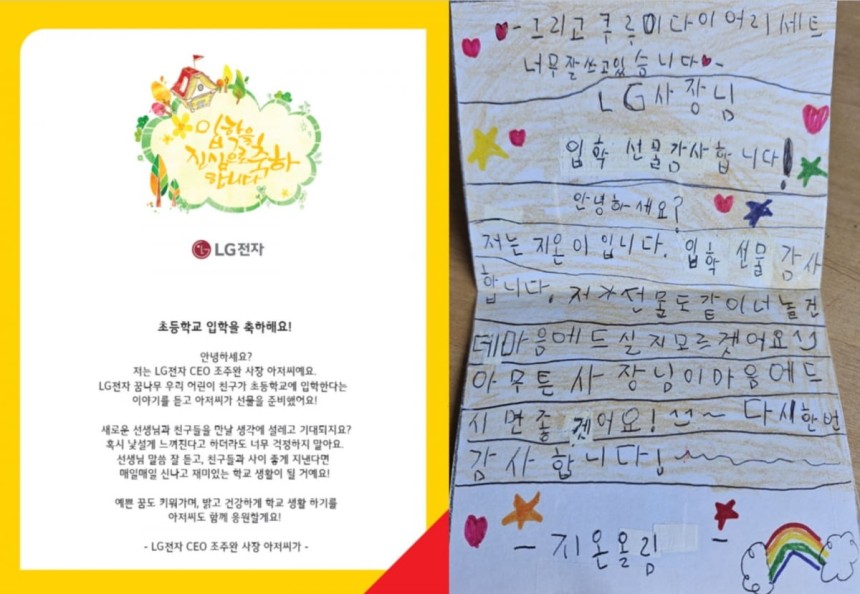 입학을
진심으로 축하
합니다
LG전자
초등학교 입학을 축하해요!
안녕하세요?
저는 LG전자 CEO 조주완 사장 아저씨예요.
LG전자 꿈나무 우리 어린이 친구가 초등학교에 입학한다는
이야기를 듣고 아저씨가 선물을 준비했어요!
새로운 선생님과 친구들을 만날 생각에 설레고 기대되지요?
혹시 낯설게 느껴진다고 하더라도 너무 걱정하지 말아요.
선생님 말씀 잘 듣고, 친구들과 사이 좋게 지낸다면
매일매일 신나고 재미있는 학교 생활이 될 거예요!
예쁜 꿈도 키워가며, 밝고 건강하게 학교 생활 하기를
아저씨도 함께 응원할게요!
- LG전자 CEO 조주완 사장 아저씨가 -
- 그리고 쿠루미다이어리세트
너무잘쓰고있습니다 -
LG사장님
입학 선물감사합니다!
안녕하세요?
저는 지온이입니다. 입학 선물 감사
합니다. 저 선물도같이너놀건
데마음에드실지모르겠어요
아무튼사장님이마음에드
시면좋겠어요! ~ 다시한번
감사합니다!
- 지온올림 -